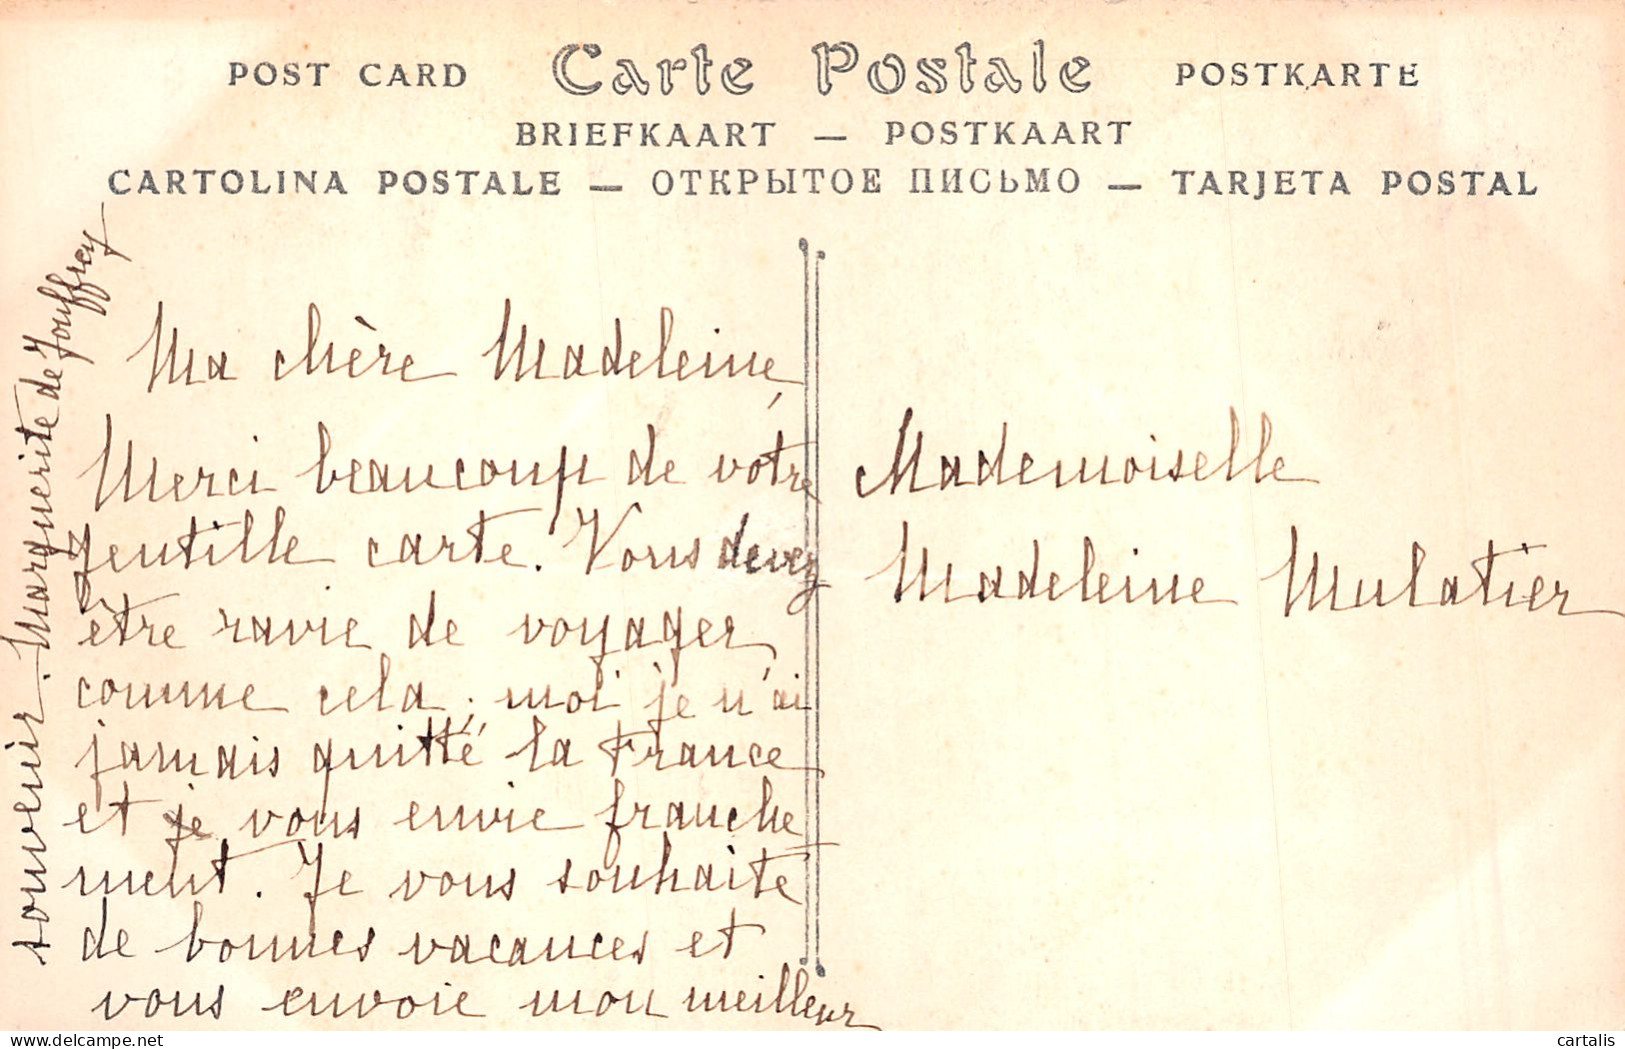 POST CARD Carte Postale POSTKARTE
BRIEFKAART — POSTKAART
CARTOLINA POSTALE — ОТКРЫТОЕ ПИСЬМО — TARJETA POSTAL
Ma chère Madeleine,
Merci beaucoup de votre
gentille carte. Vous devez
être ravie de voyager
comme cela ; moi je n'ai
jamais quitté la France
et je vous envie franche
ment. Je vous souhaite
de bonnes vacances et
vous envoie mon meilleur
souvenir. Marguerite de Jouffrey
Mademoiselle
Madeleine Mulatier
delcampe.net
cartalis